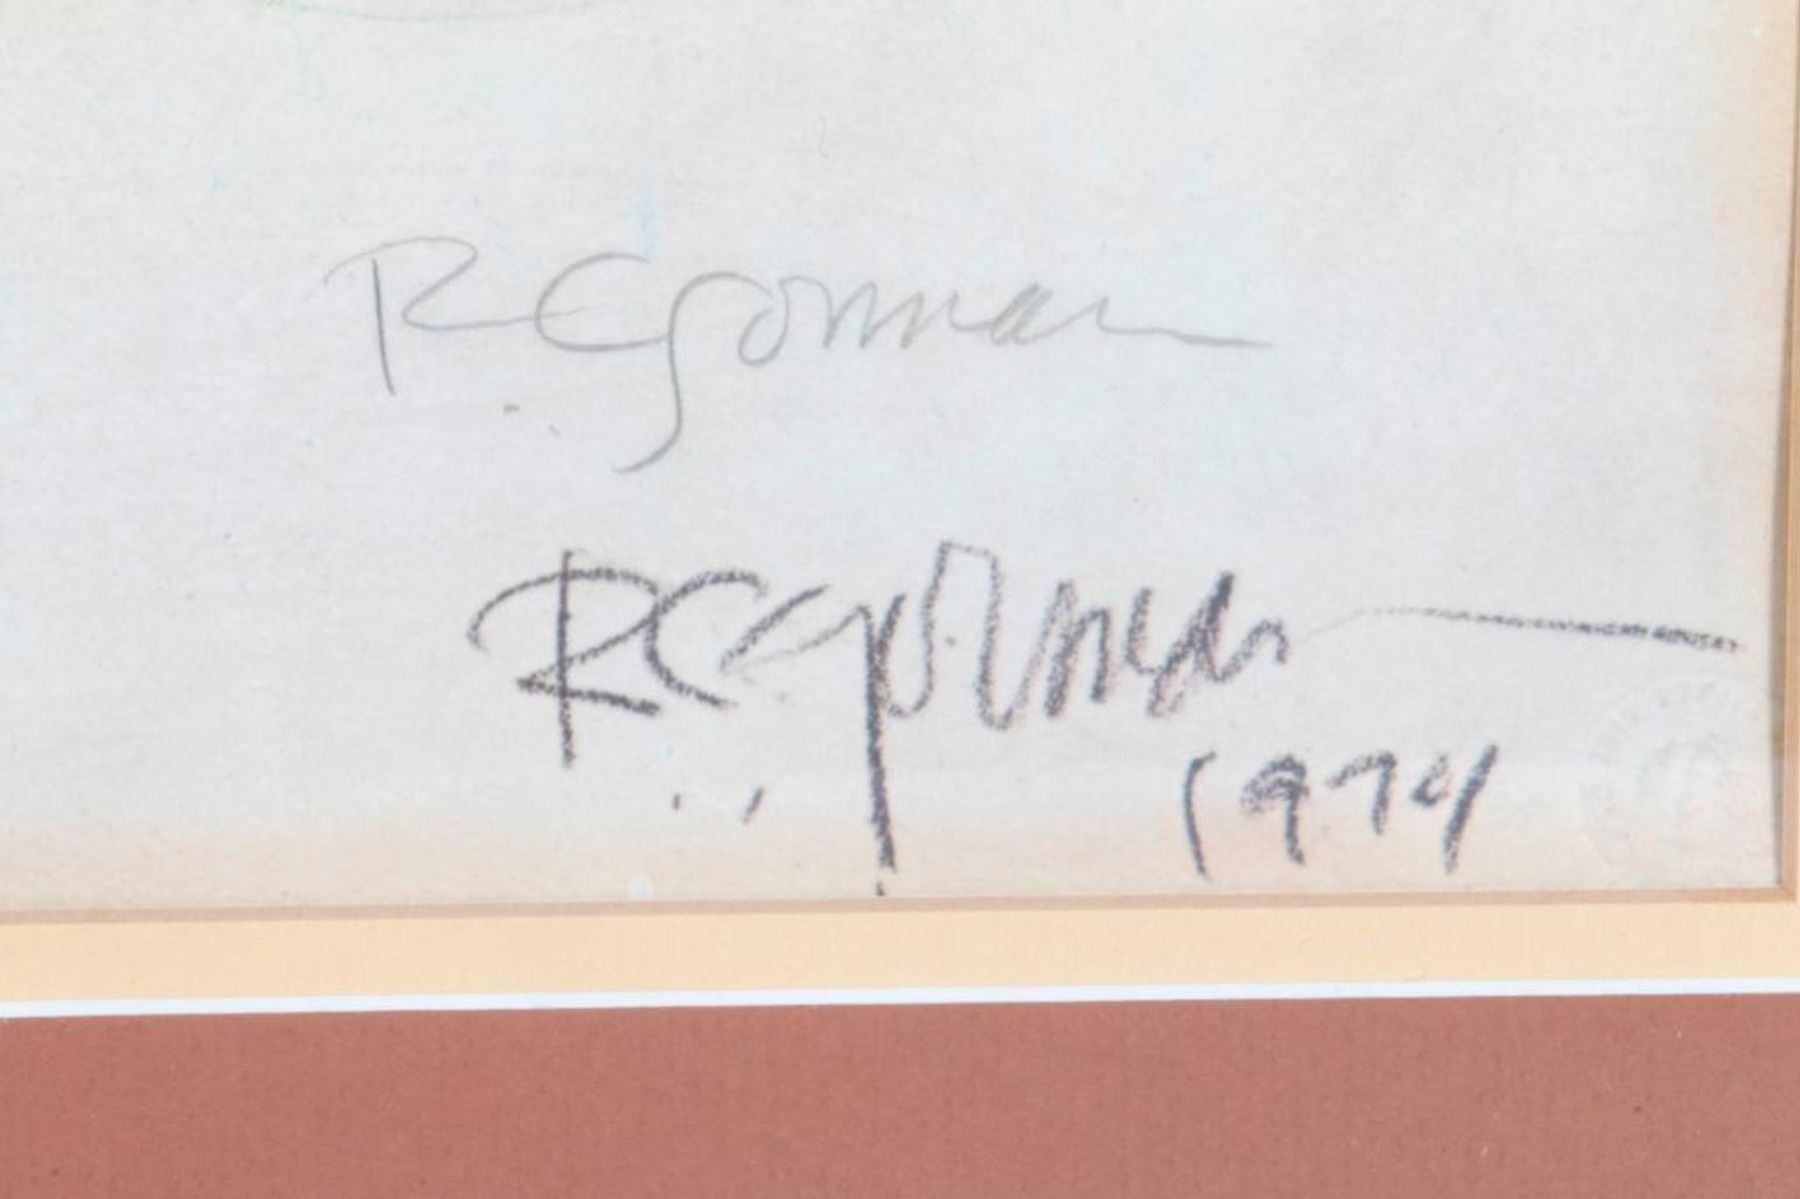 R.C. Gorman
R.C. Gorman
1974